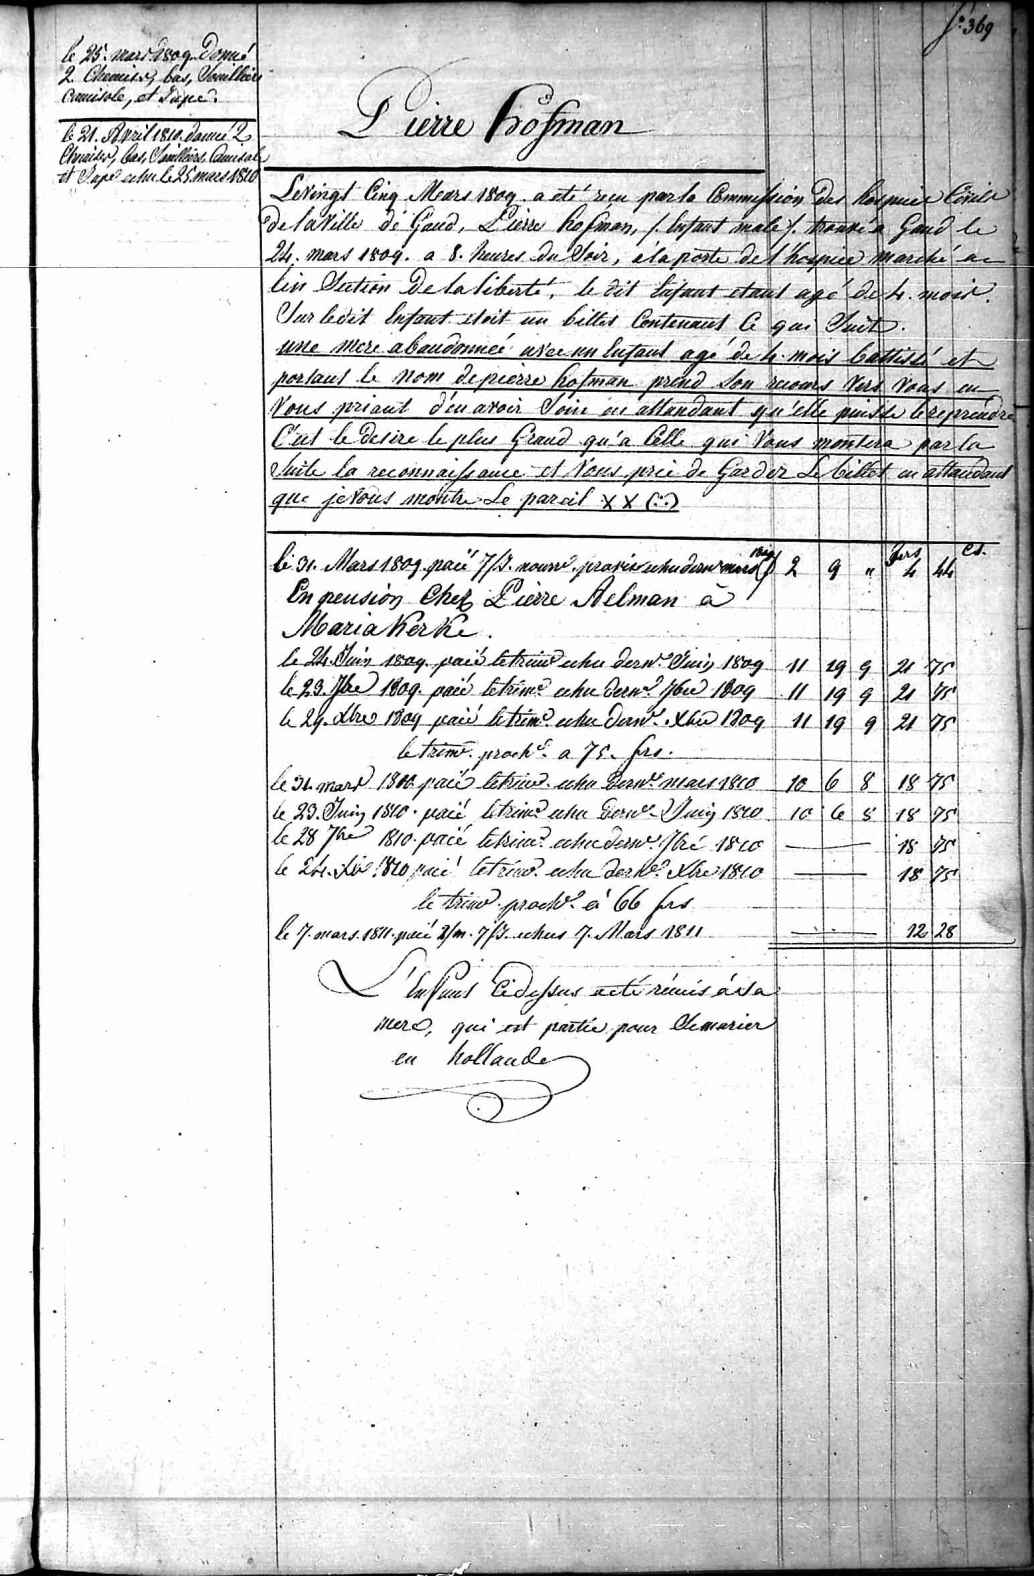 fo. 369
le 25. mars 1809. Donné
2 Chemises, bas, Souilliers
camisole, et Jupe.
le 21. Avril 1810. donné 2
Chemises, bas, Souilliers, Camisole
et Jupe echu le 25 mars 1810
Pierre hofman
Le vingt Cinq Mars 1809. a eté reçu par la Commission Des hospices Civils
de la Ville de Gand, Pierre hofman, /. Enfant male /. trouvé a Gand le
24. mars 1809. a 8. heures du Soir, à la porte de l'hospice marché au
lin Section De la liberté, le dit Enfant etant agé de 4. mois.
Sur le dit Enfant etoit un billet Contenant Ce qui Suit.
une mere abandonneé avec un Enfant agé de 4 mois battissé et
portant le nom de pierre hofman prend Son recours vers vous en
Vous priant d'en avoir Soin en attandant qu'elle puisse le reprendre
C'est le desire le plus Grand qu'a Celle qui Vous montera par la
Suite la reconnaissance et Vous prie de Garder Le billet en attandant
que je Vous montre Le pareil x x (::)
frs cs.
le 31. Mars 1809. paié 7/J. nourr. provis. echu dern. mars 1809 2 9 " 4 44
En pension Chez Pierre Aelman à
Mariakerke.
le 24. Juin 1809. paié le trim.e echu dern.r Juin 1809 11 19 9 21 75
le 23. 7bre 1809. paié le trim.e echu dern.r 7bre 1809 11 19 9 21 75
le 29. Xbre 1809 paié le trim.e echu dern.r Xbre 1809 11 19 9 21 75
le trim. proch. a 75. frs.
le 31 mars 1810 paié le trim.e echu dern.r mars 1810 10 6 8 18 75
le 23. Juin 1810. paié le trim.e echu dern.r Juin 1810 10 6 8 18 75
le 28 7bre 1810. paié le trim.e echu dern.r 7bre 1810 18 75
le 24. Xbre 1810 paié le trim.e echu dern.r Xbre 1810 18 75
le trim.e proch. à 66 frs
le 7. mars. 1811. paié 2/m. 7/J. echus 7. Mars 1811 12 28
L'Enfant Ci dessus a eté rémis á sa
mere, qui est partie pour Se marier
en hollande